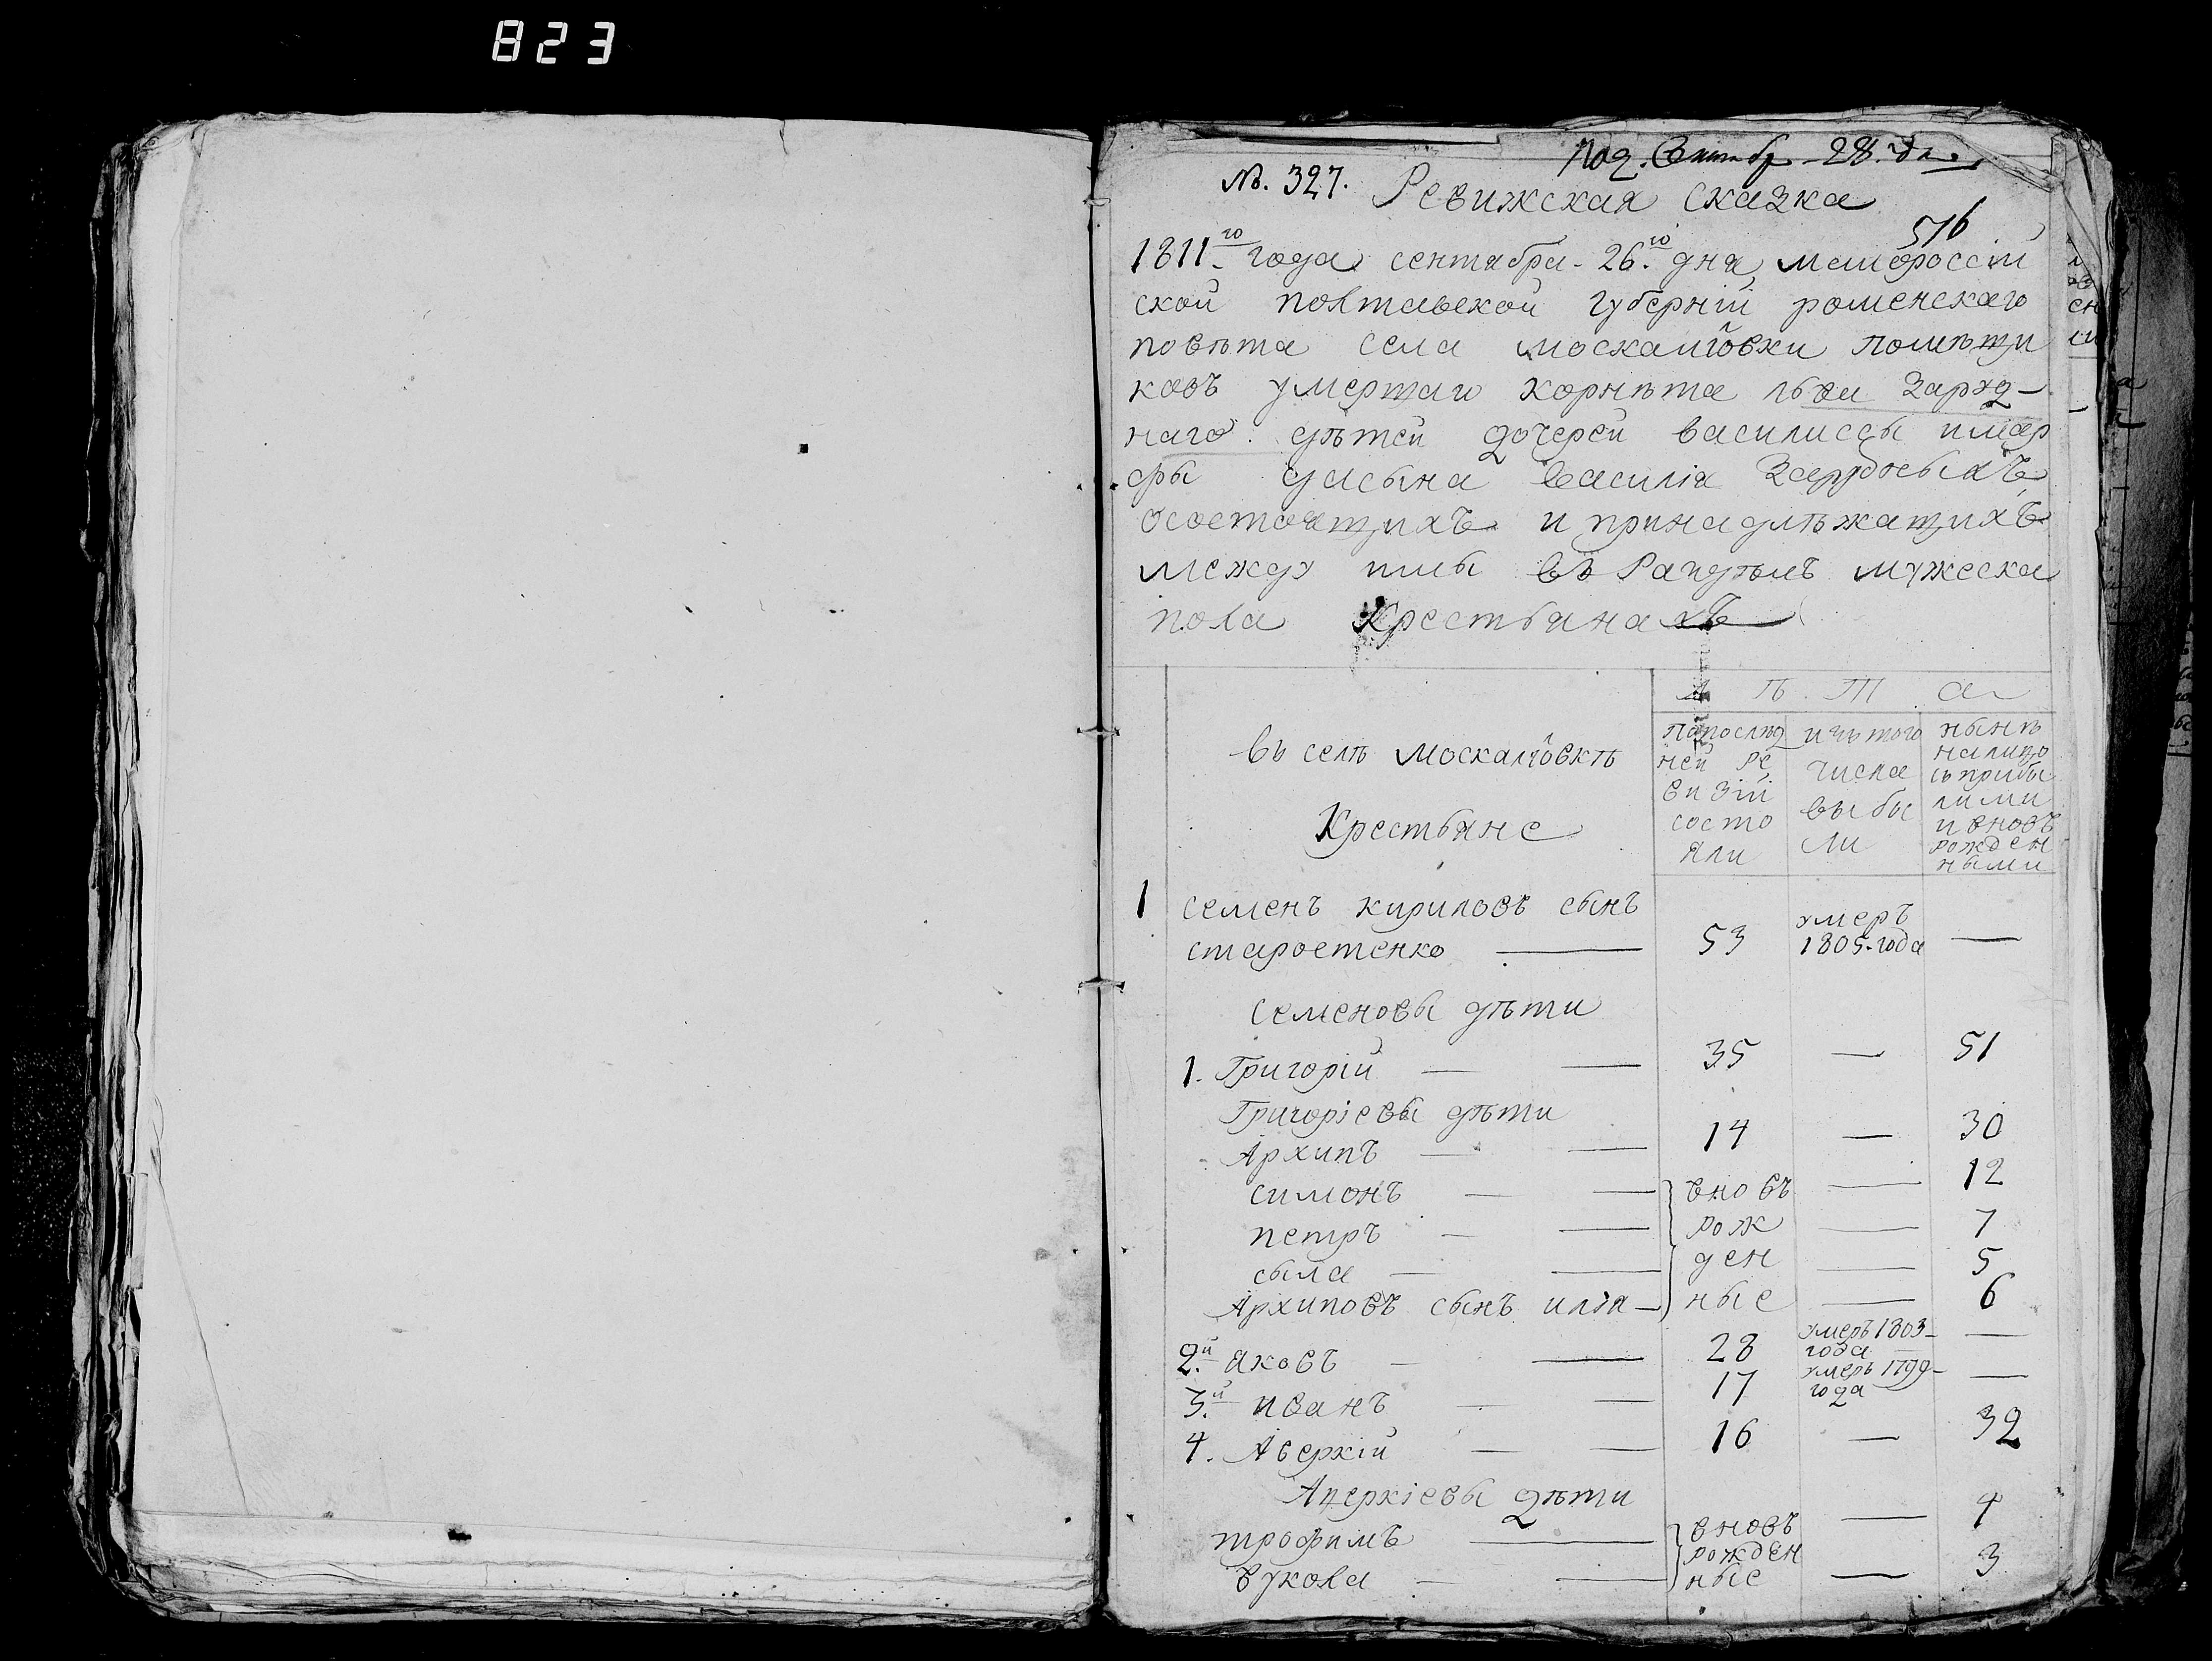 823
Под. Сентябр 28. дня
№. 327. Ревижская сказка
516
1811го года сентября 26го дня малороссій
ской полтавской губерніи роменскаго
повѣта села москалговки помѣщи
ковъ умершаго корнѣта льва Заруд-
наго дѣтей дочерей василиссы имар
фы исына василія Зарудныхъ
осостоящихъ и принадлѣжащихъ
между ими въ мужеска
пола Крестьянахъ
Л ѣ т а
въ селѣ москалговкѣ
Крестьяне
папослѣд
ней ре
визіи
состо
яли
изъ того
числа
выбы
ли
нынѣ
налицо
съприбы
лыми
ивновъ
рожден
ными
1 семенъ кириловъ сынъ
старостенко — 53 умеръ 1805 года —
семеновы дѣти
1. Григорій — — 35 — 51
Григоріевы дѣти
Архипъ — — 14 — 30
симонъ — — вновъ — 12
петръ — — рож — 7
сыла — — ден — 5
Архиповъ сынъ илія — ные — 6
2й яковъ — — 28 умеръ 1803 года —
3й иванъ — — 17 умеръ 1799 года —
4. Аверкій — — 16 — 32
Аверкіевы дѣти
трофимъ — вновъ — 4
вукола — — рожден ные — 3